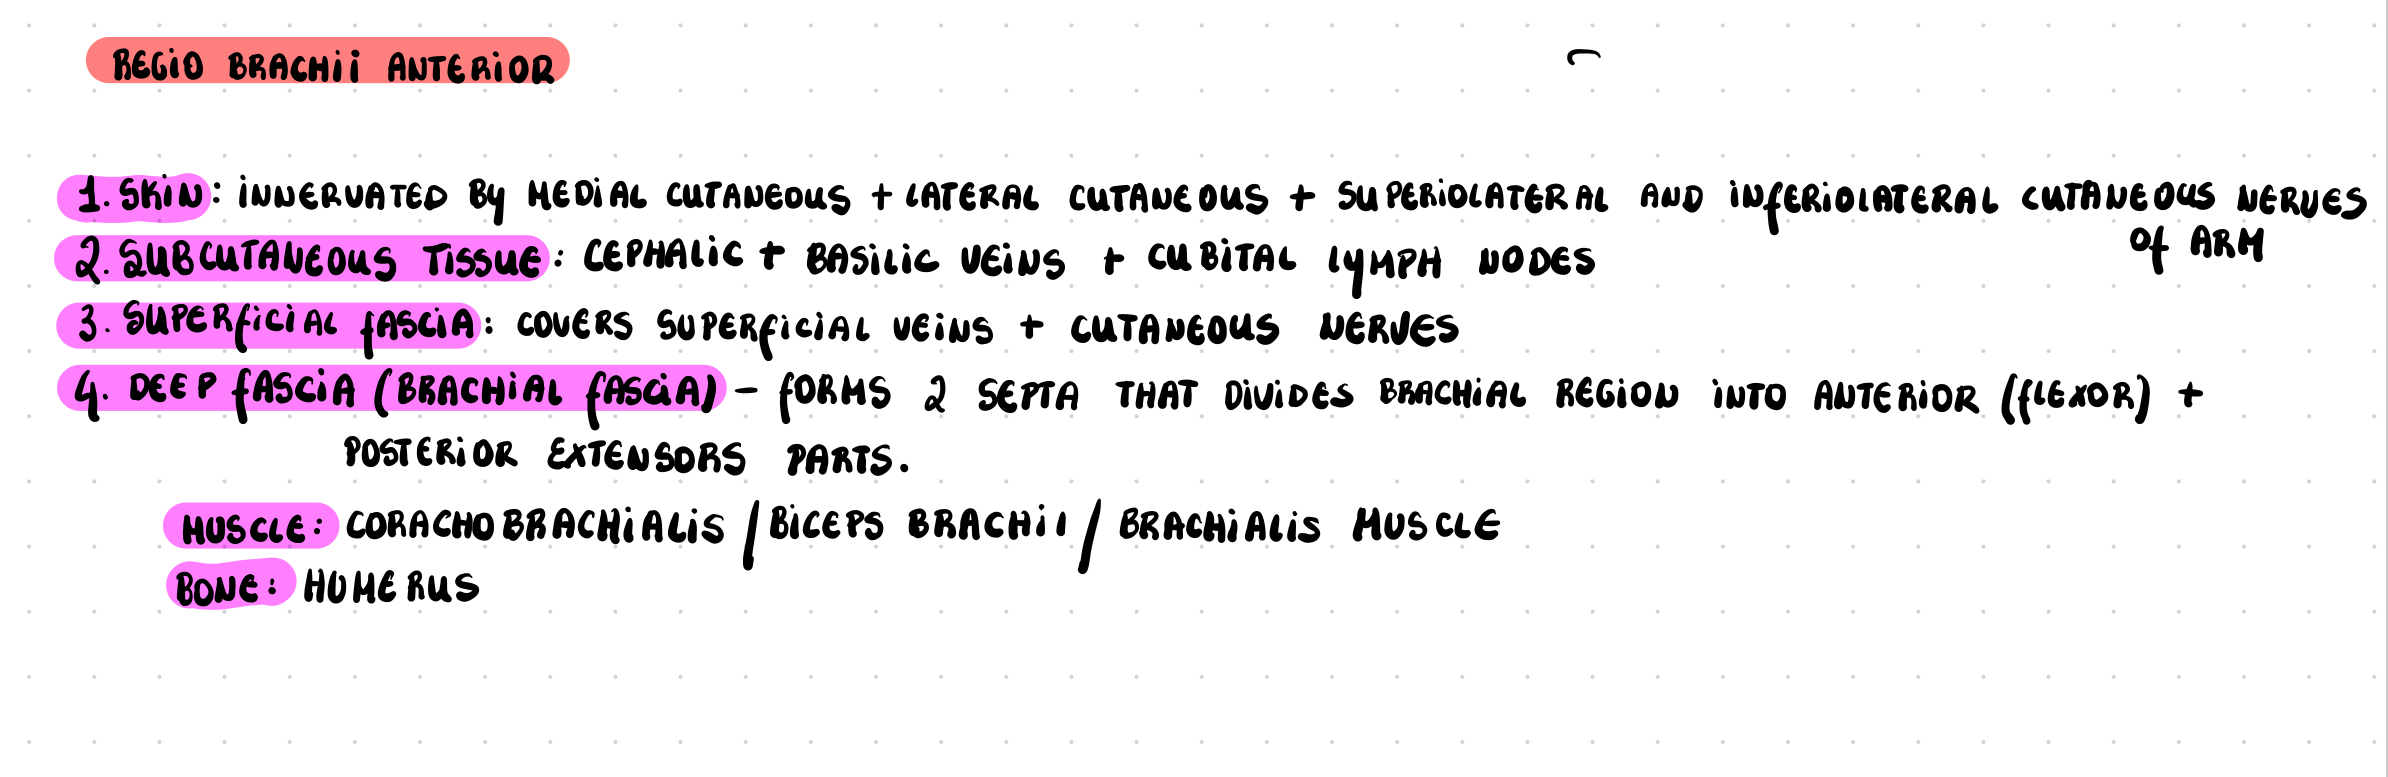 REGIO BRACHII ANTERIOR
1. SKIN: INNERVATED BY MEDIAL CUTANEOUS + LATERAL CUTANEOUS + SUPERIOLATERAL AND INFERIOLATERAL CUTANEOUS NERVES
OF ARM
2. SUBCUTANEOUS TISSUE: CEPHALIC + BASILIC VEINS + CUBITAL LYMPH NODES
3. SUPERFICIAL FASCIA: COVERS SUPERFICIAL VEINS + CUTANEOUS NERVES
4. DEEP FASCIA (BRACHIAL FASCIA) - FORMS 2 SEPTA THAT DIVIDES BRACHIAL REGION INTO ANTERIOR (FLEXOR) +
POSTERIOR EXTENSORS PARTS.
MUSCLE: CORACHOBRACHIALIS / BICEPS BRACHII / BRACHIALIS MUSCLE
BONE: HUMERUS